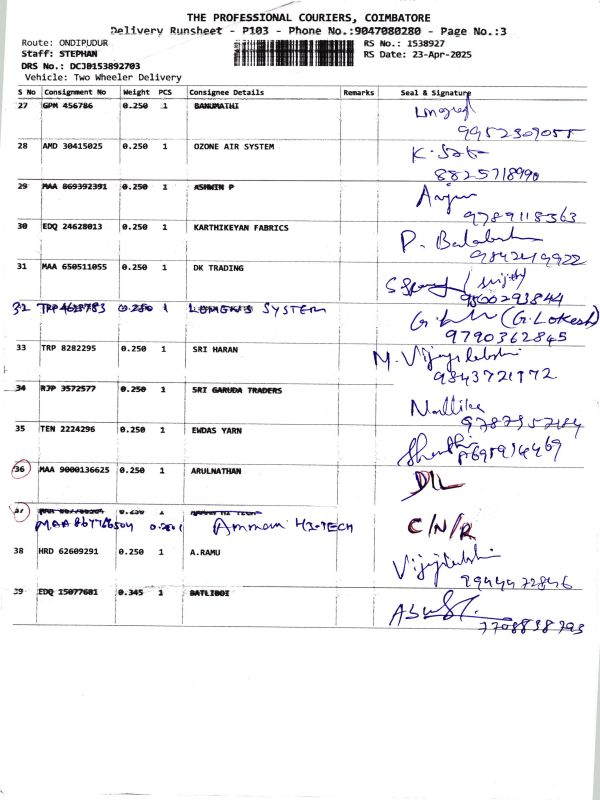 THE PROFESSIONAL COURIERS, COIMBATORE
Delivery Runsheet - P103 - Phone No.:9047080280 - Page No.:3
Route: ONDIPUDUR
RS No.: 1538927
Staff: STEPHAN
RS Date: 23-Apr-2025
DRS No.: DCJ0153892703
Vehicle: Two Wheeler Delivery
S No Consignment No Weight PCS Consignee Details Remarks Seal & Signature
27 GPM 456786 0.250 1 BANUMATHI
9952309055
28 AMD 30415025 0.250 1 OZONE AIR SYSTEM K.
8825718990
29 MAA 869392391 0.250 1 ASHWIN P
9789118563
30 EDQ 24628013 0.250 1 KARTHIKEYAN FABRICS P.
9842219922
31 MAA 650511055 0.250 1 DK TRADING
9500293844
32 TRP 0.250 1 SYSTEM (G.Lokesh)
9790362845
33 TRP 8282295 0.250 1 SRI HARAN M. Vijayalakshmi
9843721772
34 RJP 3572577 0.250 1 SRI GARUDA TRADERS Mallika
35 TEN 2224296 0.250 1 EWDAS YARN Shanthi
36 MAA 9000136625 0.250 1 ARULNATHAN D/L
37
MAA 867766504 0.250 1 Amman HI-TECH C/N/R
38 HRD 62609291 0.250 1 A.RAMU Vijayalakshmi
9944972846
39 EDQ 15077681 0.345 1 BATLIBOI
7708838793